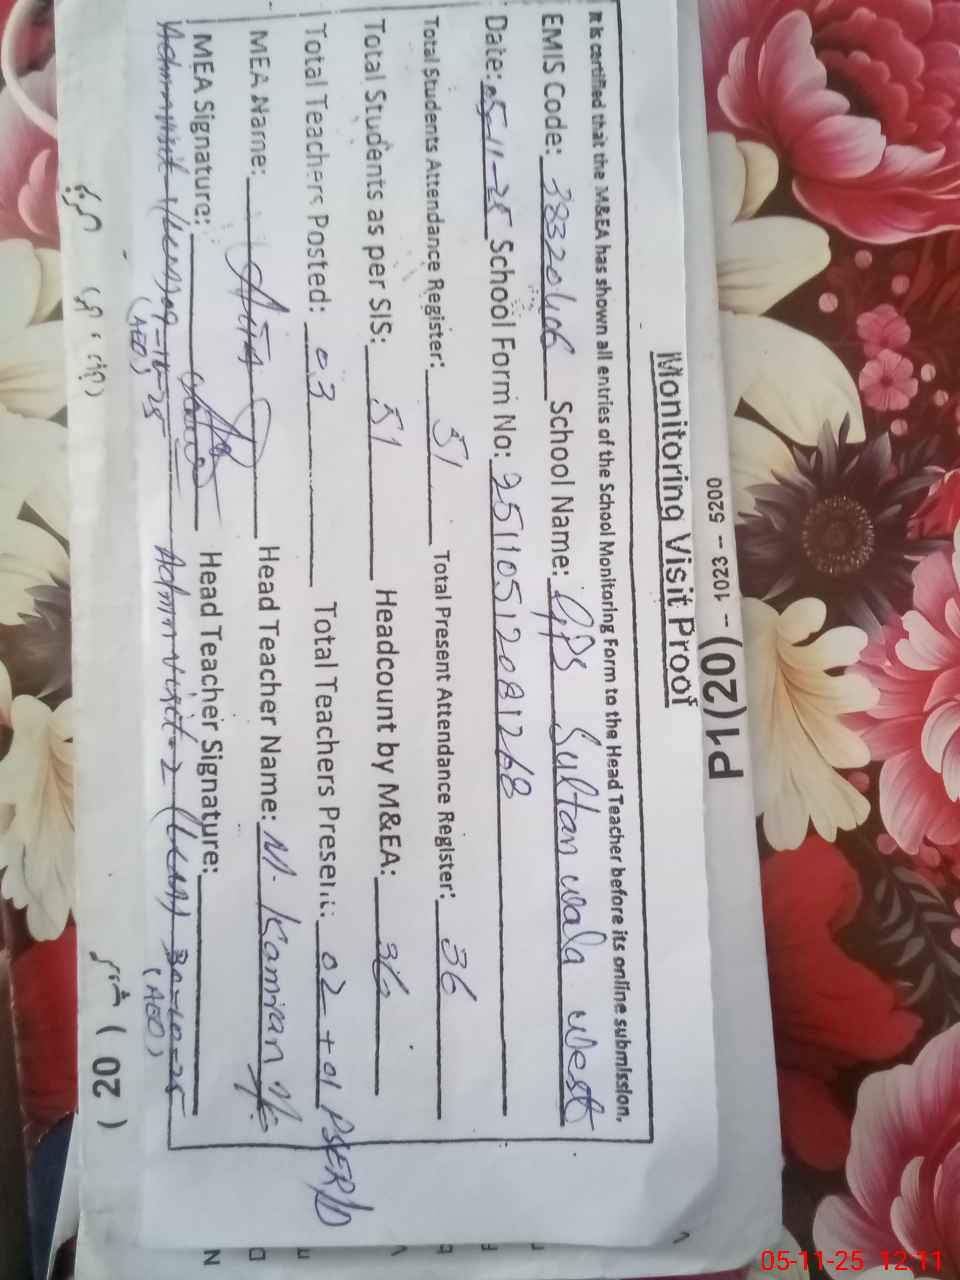 P1(20) – 1023 – 5200
Monitoring Visit Proof
It is certified that the M&EA has shown all entries of the School Monitoring Form to the Head Teacher before its online submission.
EMIS Code: School Name: GPS Sultan wala West
Date: 05-11-25 School Form No: 25110512081268
Total Students Attendance Register: 51 Total Present Attendance Register: 36
Total Students as per SIS: 51 Headcount by M&EA: 36
Total Teachers Posted: 03 Total Teachers Present: 02 + 01
MEA Name: Head Teacher Name: M. Kamran
MEA Signature: Head Teacher Signature:
Admn visit 09-10-25 Admn visit-2 30-10-25
(AEO) (AEO)
( 20 )
05-11-25 12:11